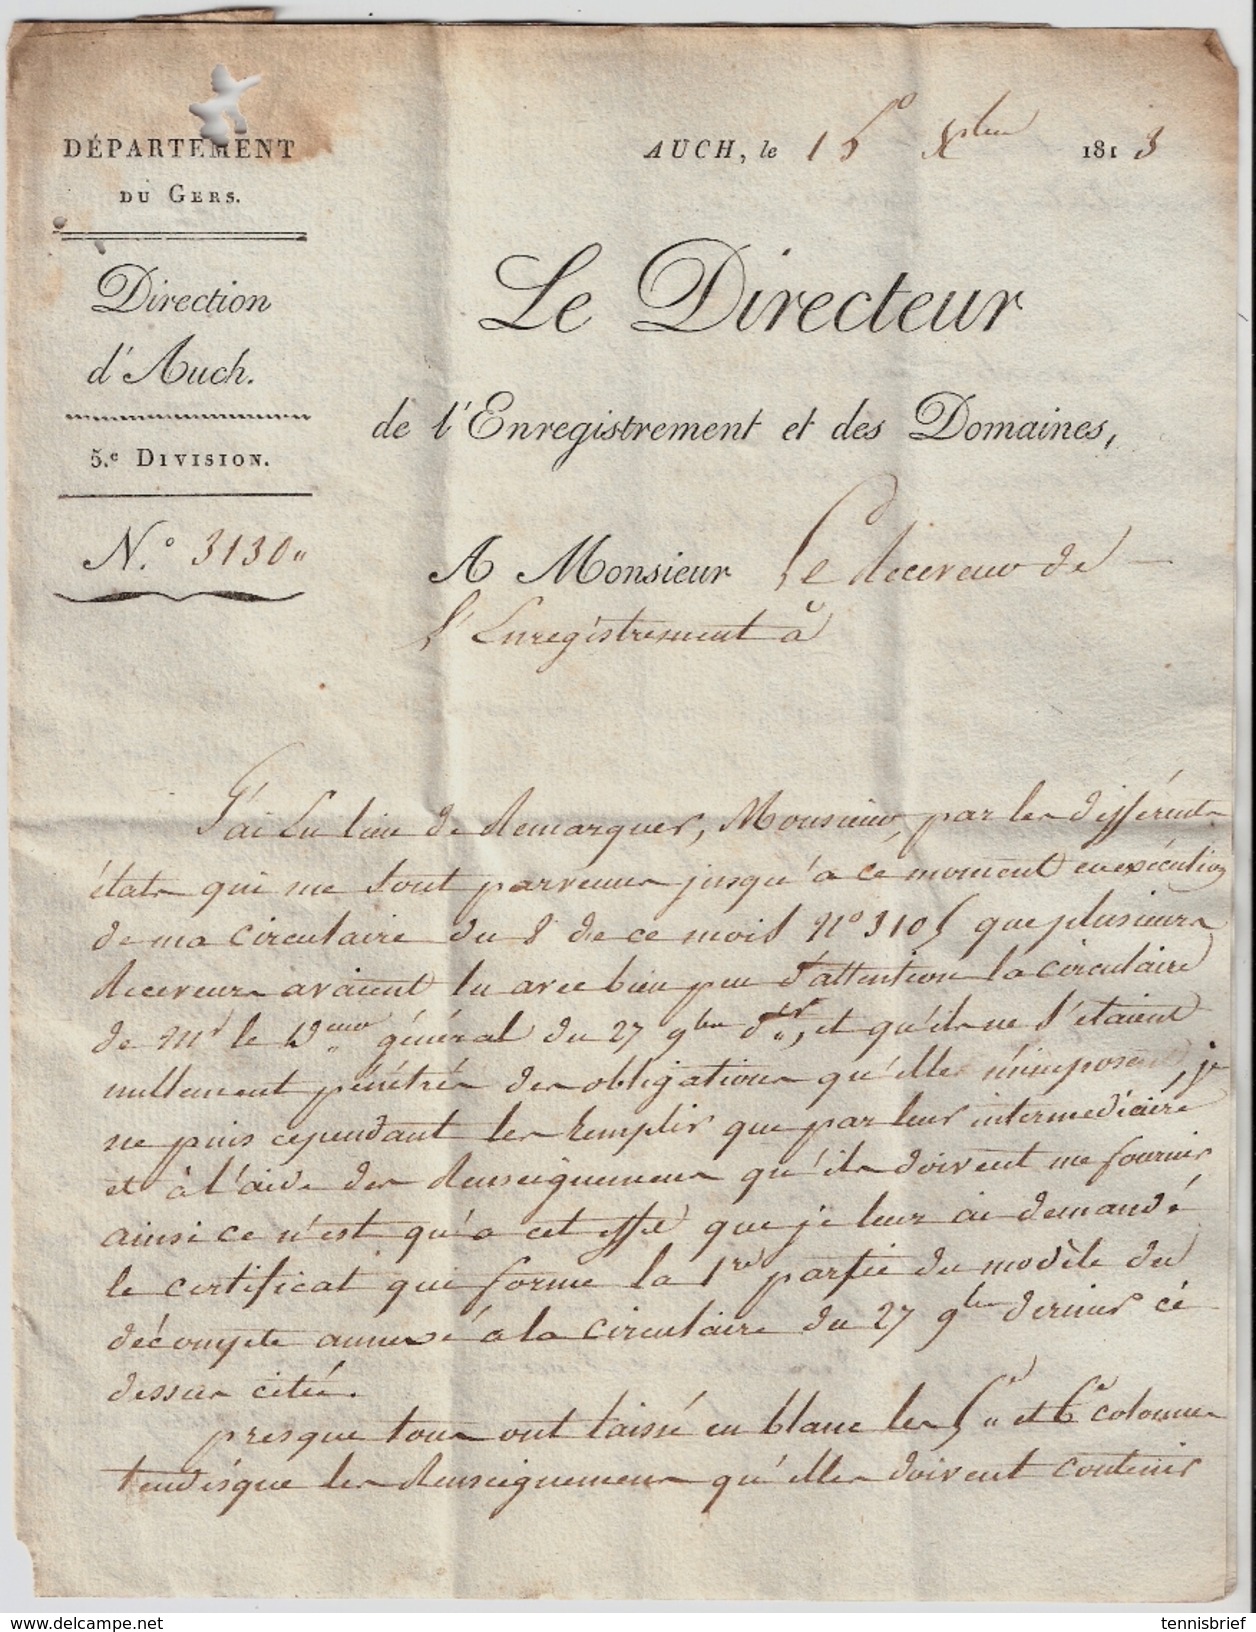 DÉPARTEMENT
DU GERS.
Direction
d'Auch.
5.e DIVISION.
N.o 3130"
AUCH, le 15 Xbre 1813
Le Directeur
de l'Enregistrement et des Domaines,
A Monsieur Le Receveur de
l'Enregistrement à
J'ai eu lieu de Remarquer, Monsieur, par les différents
états qui me sont parvenus jusqu'à ce moment en exécution
de ma circulaire du 8 de ce mois No 3105 que plusieurs
Receveurs avaient lu avec bien peu d'attention la circulaire
de Mr le général du 27 9bre dr, et qu'ils ne s'étaient
nullement pénétrés des obligations qu'elle m'impose, je
ne puis cependant les remplir que par leur intermédiaire
et à l'aide des Renseignemens qu'ils doivent me fournir
ainsi ce n'est qu'à cet effet que je leur ai demandé
le certificat qui forme la 1re partie du modèle du
décompte annexé à la circulaire du 27 9bre dernier ci
dessus citée.
presque tous ont laissé en blanc les 5e et 6e colonnes
tandisque les Renseignemens qu'elles doivent contenir
tennisbrief - www.delcampe.net